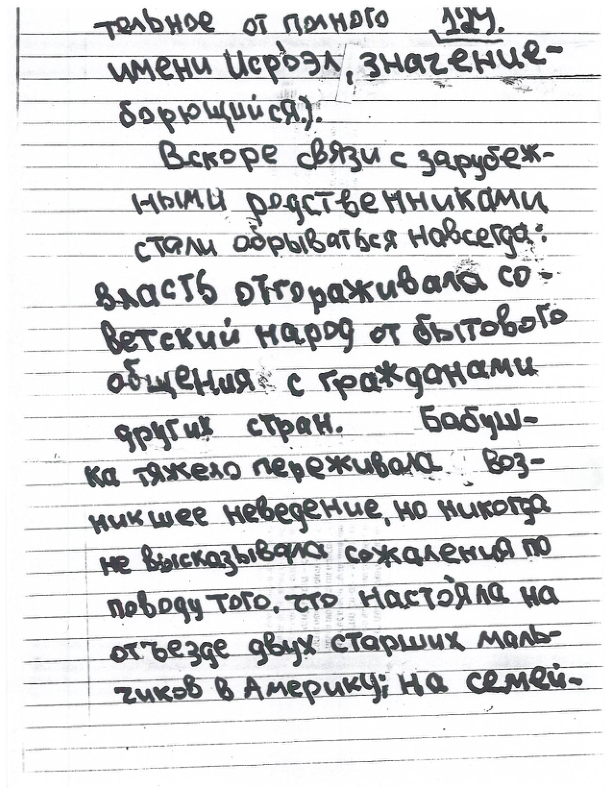 тельное от полного 124.
имени Исроэл, значение-
борющийся.).
Вскоре связи с зарубеж-
ными родственниками
стали обрываться навсегда:
власть отгораживала со-
ветский народ от бытового
общения с гражданами
других стран. Бабуш-
ка тяжело переживала воз-
никшее неведение, но никогда
не высказывала сожаления по
поводу того, что настояла на
отъезде двух старших маль-
чиков в Америку; на семей-